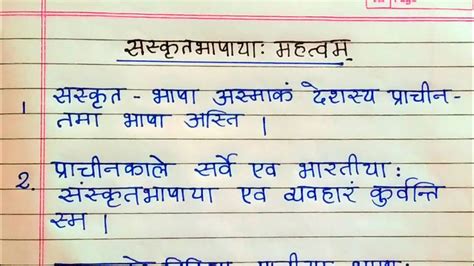 संस्कृतभाषायाः महत्वम्
1. संस्कृत - भाषा अस्माकं देशस्य प्राचीन-
तमा भाषा अस्ति ।
2. प्राचीनकाले सर्वे एव भारतीयाः
संस्कृतभाषाया एव व्यवहारं कुर्वन्ति
स्म ।